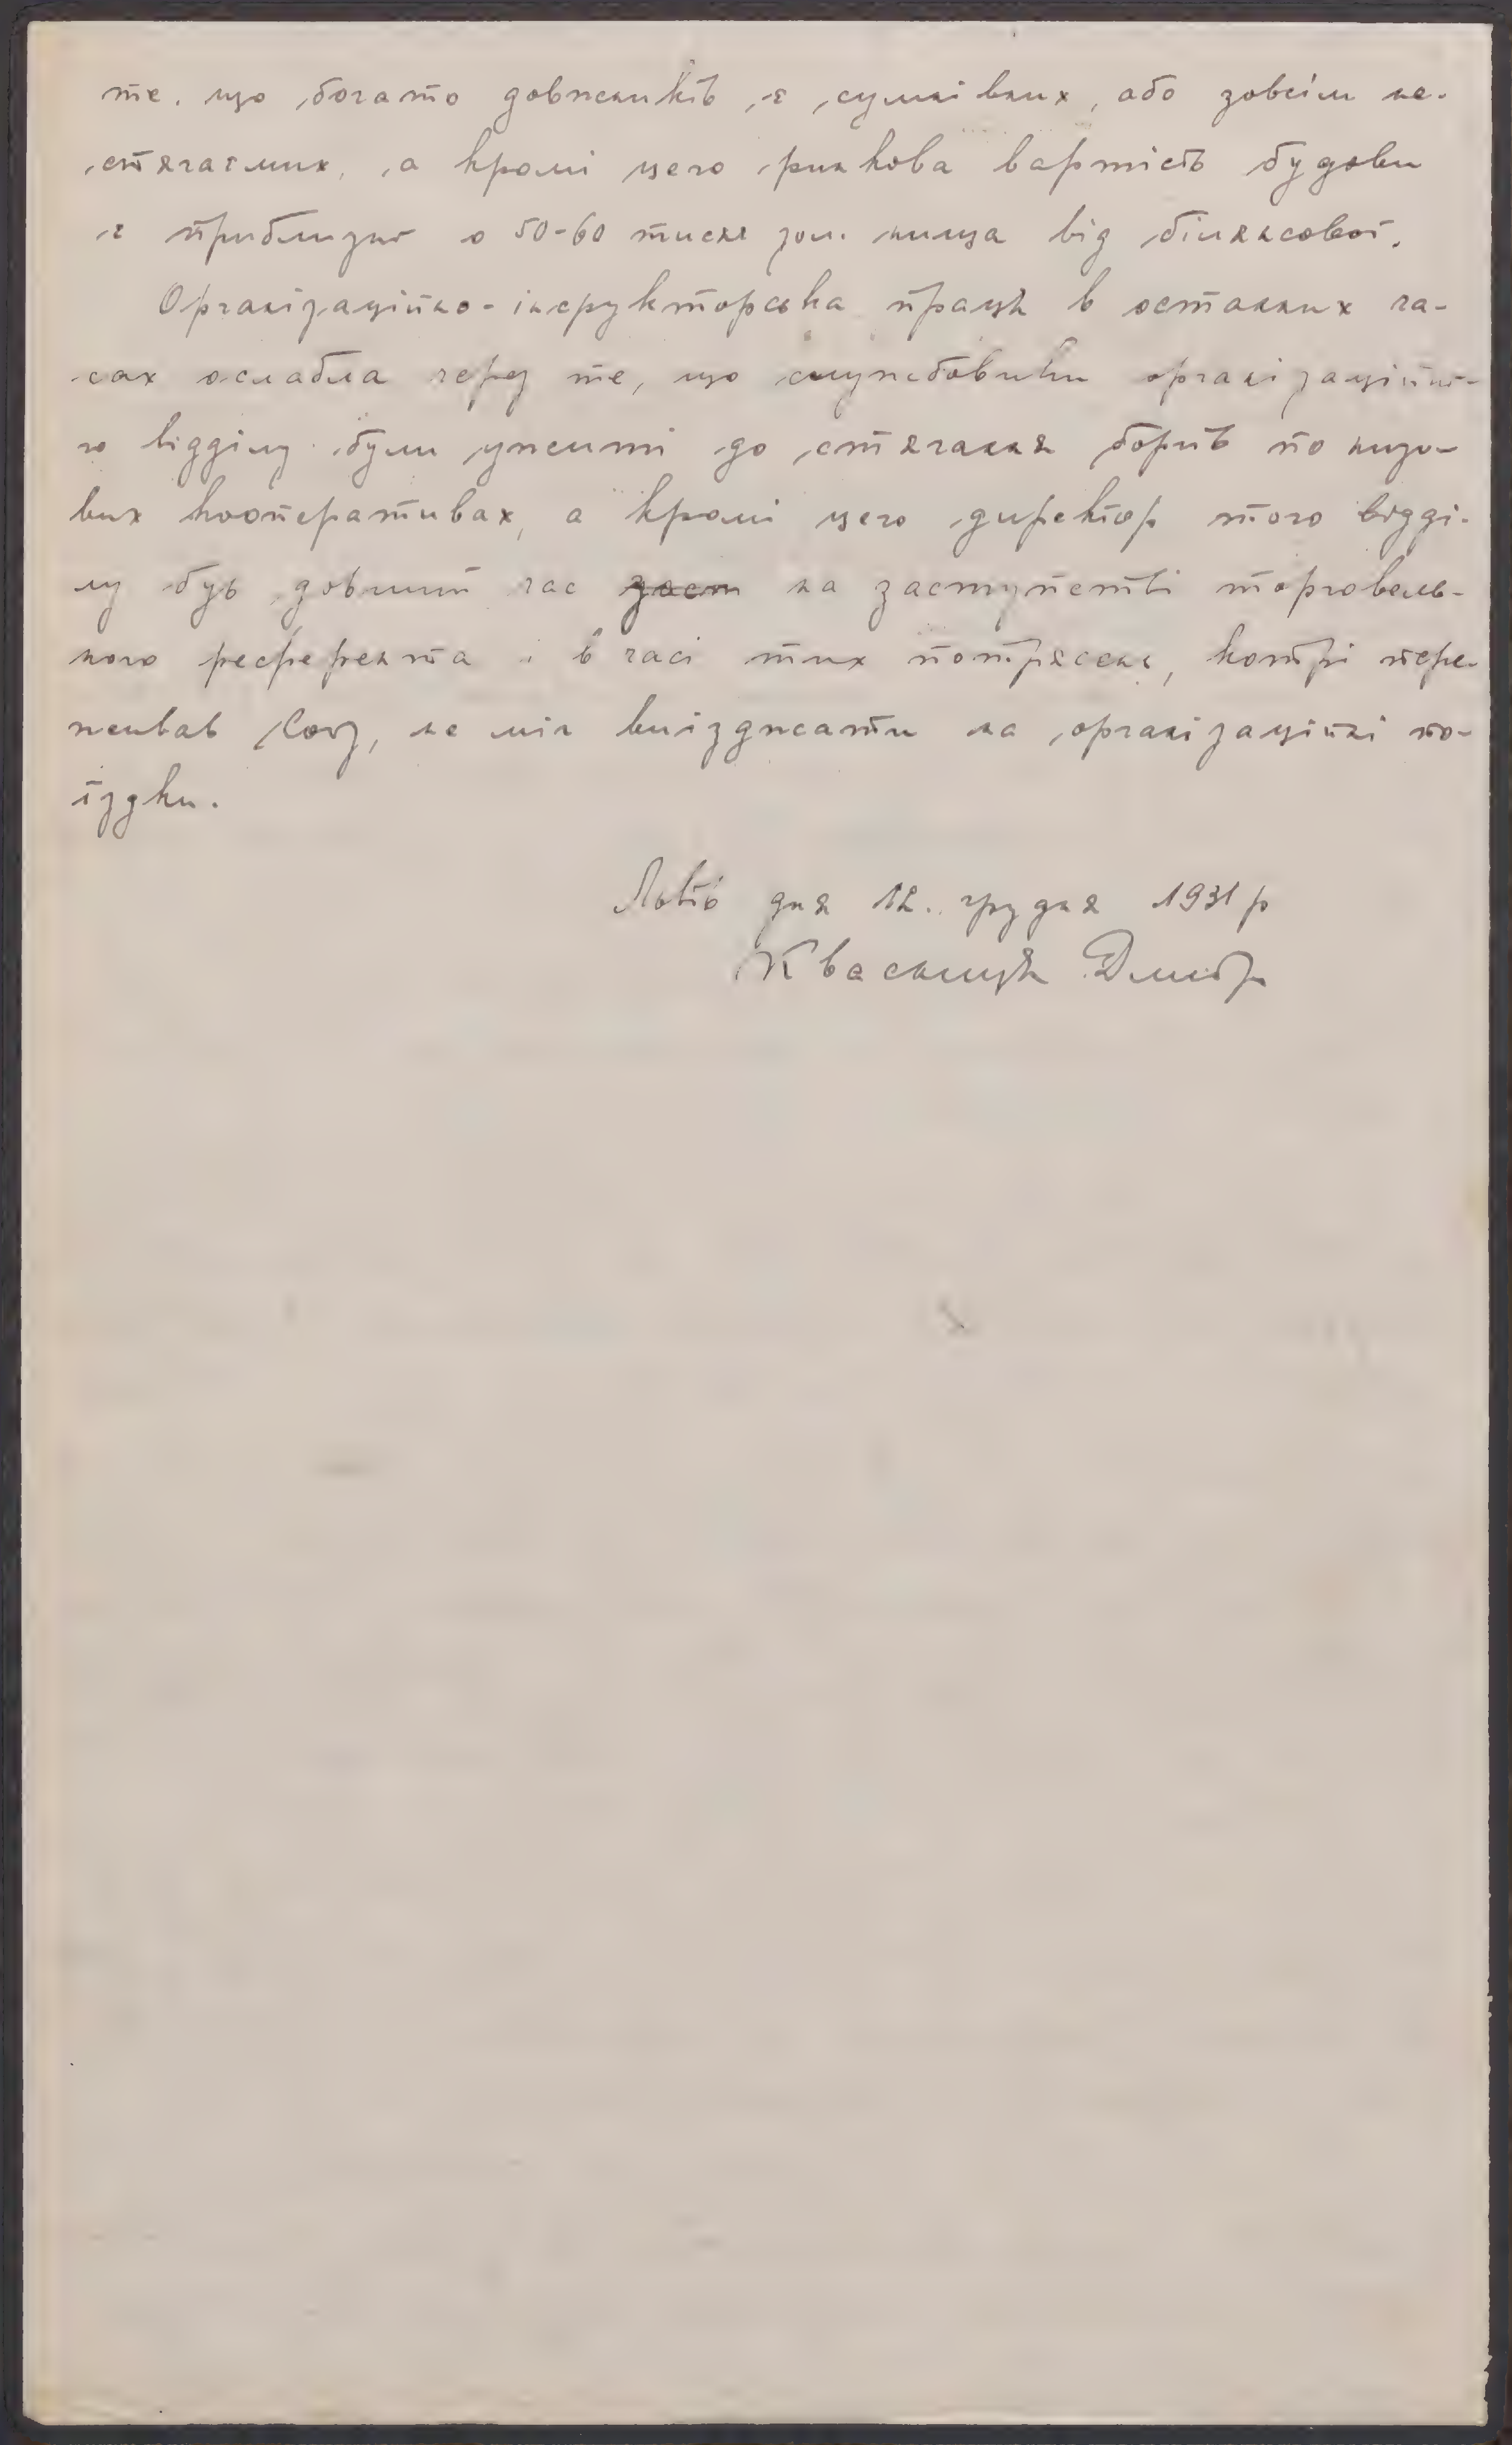 те, що богато довжників є сумнівних, або зовсім не-
стягаємих, а кромі цего ринкова вартість будови
є приблизно о 50-60 тисяч зол. низща від білянсової.
Організаційно-інструкторська праця в останних ча-
сах ослабла через те, що службовики організаційно-
го відділу були ужиті до стягання боргів по низо-
вих кооперативах, а кромі цего директор того відді-
лу був довший час заст на заступстві торговель-
ного референта і в часі тих потрясень, котрі пере-
живав Союз, не міг виізджати на організаційні по-
їздки.
Львів дня 12. грудня 1931 р
Квасниця Дмитро